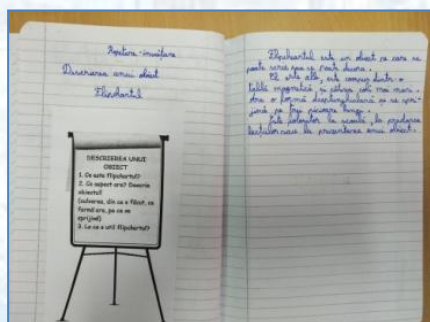 Repetare-învățare
Descrierea unui obiect
Flipchartul
DESCRIEREA UNUI
OBIECT
1. Ce este flipchartul?
2. Ce aspect are? Descrie
obiectul!
(culoarea, din ce e făcut, ce
formă are, pe ce se
sprijină)
3. La ce e util flipchartul?
Flipchartul este un obiect pe care se
poate scrie sau se poate desena.
El este alb, este compus dintr-o
tablă magnetică și câteva coli mai mari.
Are o formă dreptunghiulară și se spri-
jină pe trei picioare lungi.
Este folositor la școală, la predarea
lecțiilor sau la prezentarea unui obiect.